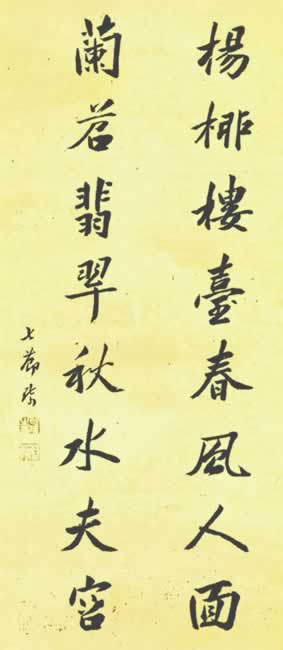 楊柳樓臺春風人面
蘭苕翡翠秋水夫容
七薌